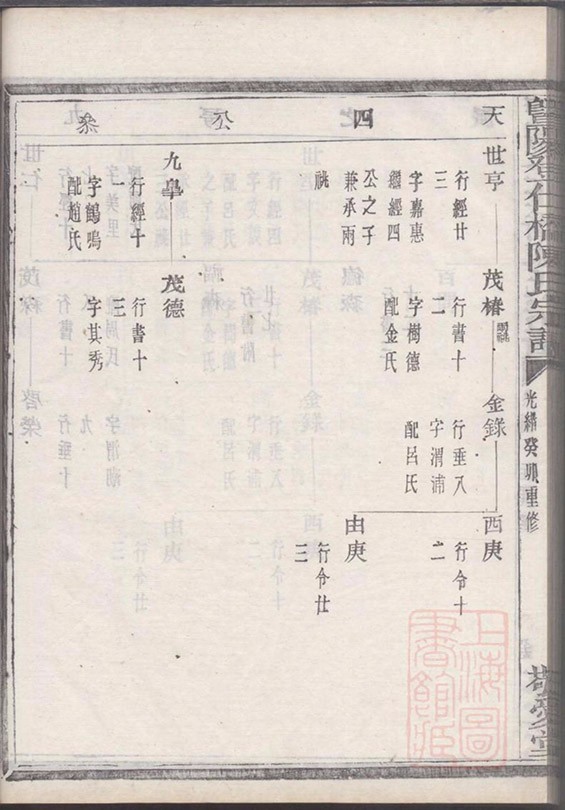 暨陽登仕橋陳氏宗譜
光緒癸卯重修
敬愛堂
天四公叅
世亨
行經廿
三
字嘉惠
繼經四
公之子
兼承兩
祧
茂椿
行書十
一
字樹德
配金氏
金錄
行垂八
二
字渭浦
配呂氏
酉庚
行令十
二
由庚
行令廿
三
九皐
行經十
一
字鶴鳴
配趙氏
茂德
行書十
三
字其秀
上海圖
書館藏